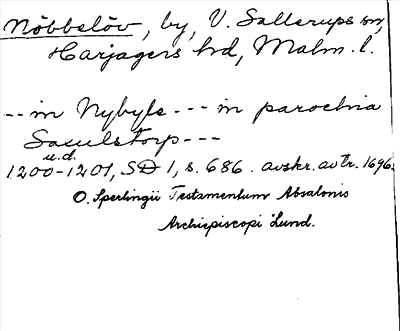 Nöbbelöv, by, V. Sallerups sn,
Harjagers hd, Malm. l.
--in Nybyle --- in parochia
Saxulstorp ---
u.d.
1200-1201, SD 1, s. 686. avskr. av tr. 1696.
O. Sperlingii Testamentum Absalonis
Archiepiscopi Lund.